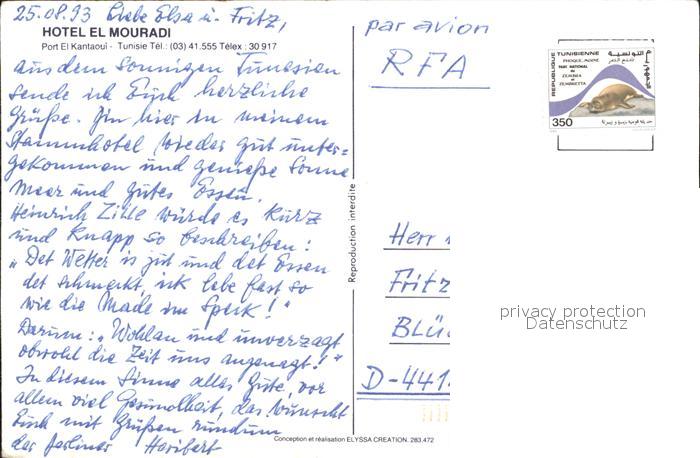 25.08.93 Liebe Elsa u. Fritz,
HOTEL EL MOURADI
Port El Kantaoui - Tunisie Tél.: (03) 41.555 Télex : 30 917
aus dem sonnigen Tunesien
sende ich Euch herzliche
Grüße. Bin hier in meinem
Stammhotel wieder gut unter=
gekommen und genieße Sonne
Meer und gutes Essen.
Heinrich Zille würde es kurz
und knapp so beschreiben:
„Det Wetter is jut und det Essen
det schmeckt, ick lebe fast so
wie die Made im Speck!"
Darum: „Wohlan und unverzagt
obwohl die Zeit uns angenagt!"
In diesem Sinne alles Gute, vor
allem viel Gesundheit, das wünscht
Euch mit Grüßen rundum
der Berliner Heribert
Reproduction interdite
Conception et réalisation ELYSSA CREATION. 283.472
par avion
RFA
REPUBLIQUE TUNISIENNE
PHOQUE MOINE
PARC NATIONAL
DE
ZEMBRA
ET
ZEMBRETTA
350
Herr
Fritz
BLÜ
D-441
privacy protection
Datenschutz